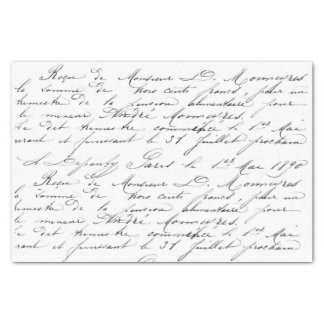 Reçu de Monsieur D. Monnayres
la somme de trois cents francs, pour un
trimestre de la pension alimentaire pour
le mineur André Monnayres.
Le dit trimestre commence le 1er Mai
urant et finissant le 31 Juillet prochain
Paris le 1er Mai 1890
Reçu de Monsieur D. Monnayres
la somme de trois cents francs, pour un
trimestre de la pension alimentaire pour
le mineur André Monnayres.
le dit trimestre commence le 1er Mai
rant et finissant le 31 Juillet prochain